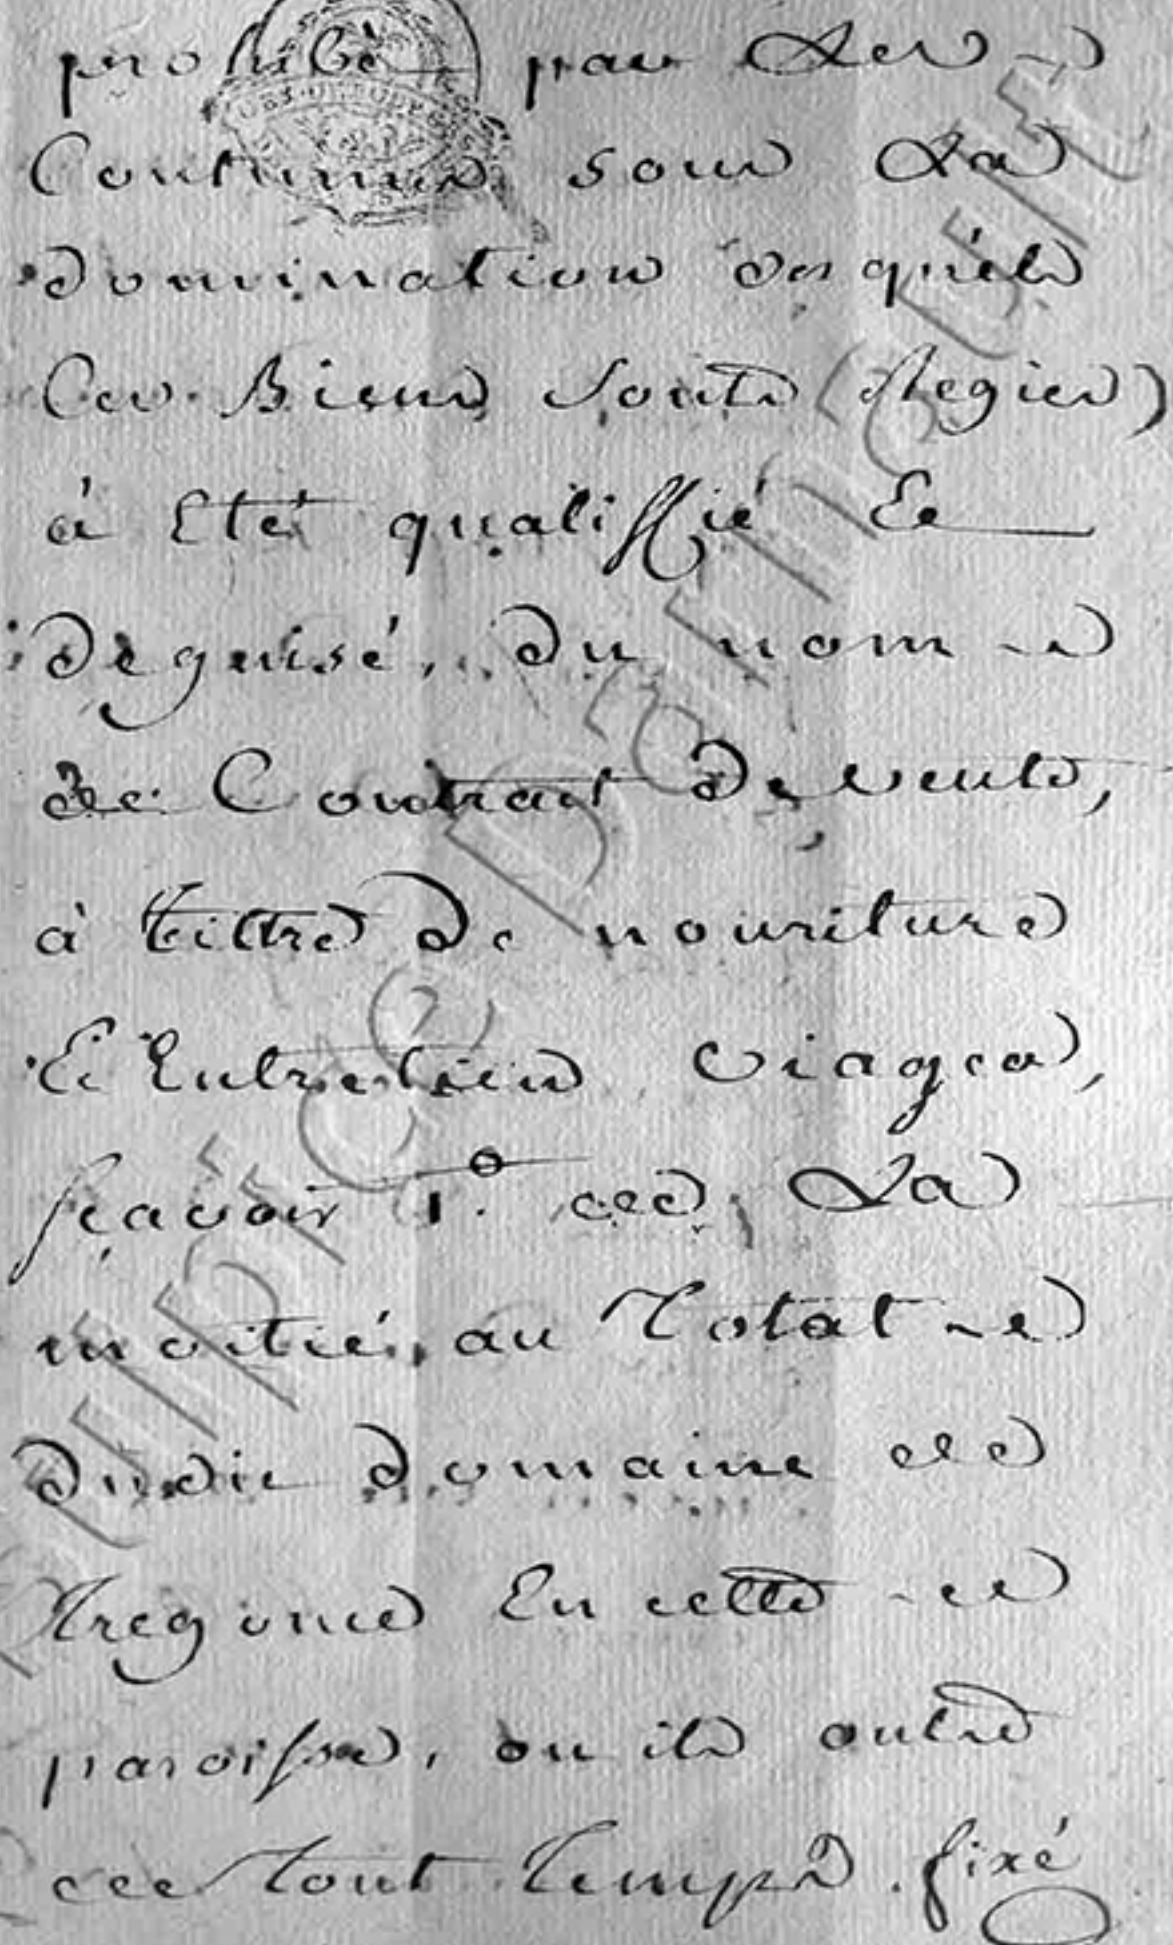 prohibé par Les
Coutumes sous La
domination desquéls
Ces Biens Sonts (Regies)
à Eté qualiffié Et
deguisé, du nom
de Contract De vente,
à tiltre De nouriture
Et Entretien viager,
sçavoir 1.° La
moitié, au Total
dudit domaine
En cette
paroisse, ou ils ont
tout temps fixé